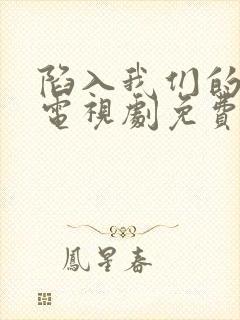 陷入我们的
電視劇免費
鳳星春